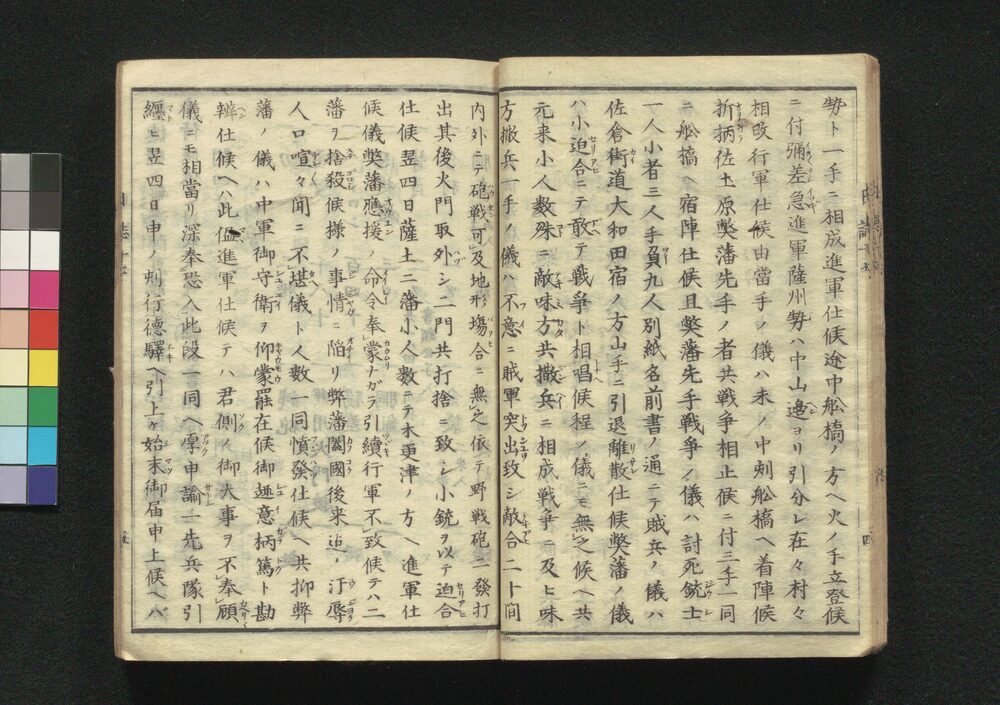 勢ト一手ニ相成進軍仕候途中舩橋ノ方ヘ火ノ手立登候
ニ付彌差急進軍薩州勢ハ中山邊ヨリ引分レ在々村々
相改行軍仕候由當手ノ儀ハ未ノ中刺舩橋ヘ着陣候
折柄佐土原獘藩先手ノ者共戦争相止候ニ付三手一同
ニ舩橋ヘ宿陣仕候且獘藩先手戦争ノ儀ハ討死銃士
一人小者三人手負九人別紙名前書ノ通ニテ賊兵ノ儀ハ
佐倉街道大和田宿ノ方山手ニ引退離散仕候獘藩ノ儀
ハ小迫合ニテ敢テ戦爭ト相唱候程ノ儀ニモ無之候ヘ共
元来小人数殊ニ敵味方共撒兵ニ相成戦爭ニ及ヒ味
方撒兵一手ノ儀ハ不意ニ賊軍突出致シ敵合二十間
内外ニテ砲戦可及地形塲合ニ無之依テ野戦砲二發打
出其後火門取外シ二門共打捨ニ致シ小銃ヲ以テ迫合
仕候翌四日薩土二藩小人数ニテ木更津ノ方ヘ進軍仕
候儀獘藩應援ノ命令奉蒙ナガラ引續行軍不致候テハ二
藩ヲ捨殺候様ノ事情ニ陥リ弊藩闔國後来迠ノ汙辱
人口喧々聞ニ不堪儀ト人数一同憤發仕候ヘ共抑弊
藩ノ儀ハ中軍御守衛ヲ仰蒙罷在候御趣意柄篤ト勘
辨仕候ヘハ此儘進軍仕候テハ君側ノ御大事ヲ不奉顧
儀ニモ相當リ深奉恐入此段一同ヘ厚申諭一先兵隊引
纏ヒ翌四日申ノ刺行德驛ヘ引上ケ始末御届申上候ヘバ